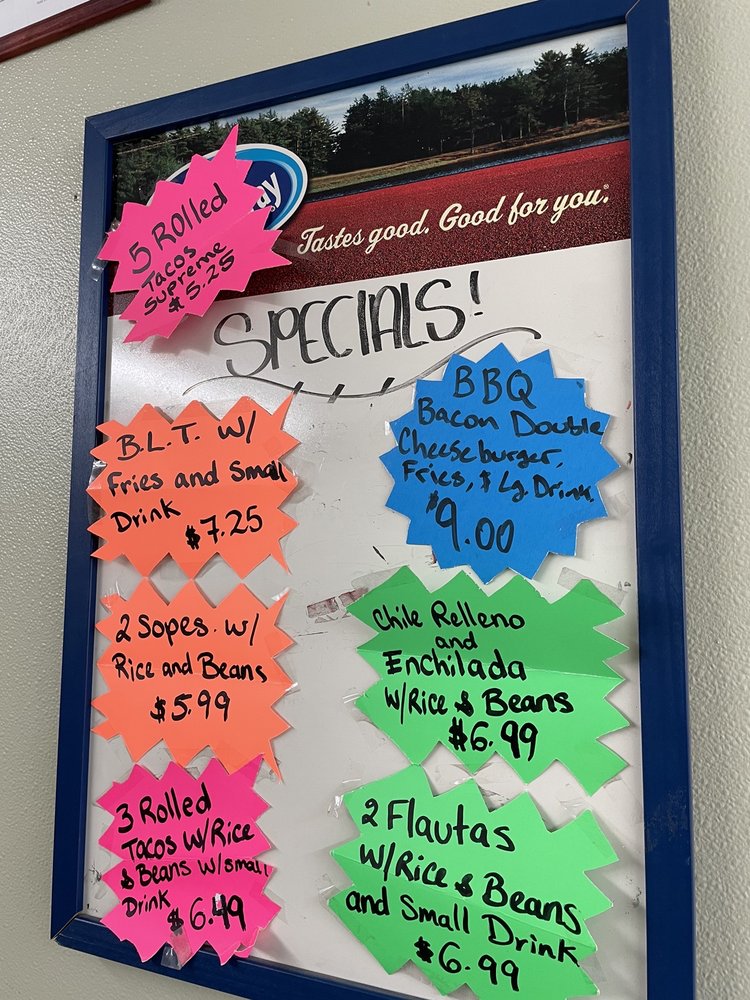 Tastes good. Good for you.®
5 Rolled
Tacos
Supreme
$5.25
SPECIALS!
B.L.T. W/
Fries and Small
Drink
$7.25
BBQ
Bacon Double
Cheeseburger,
Fries, & Lg. Drink.
$9.00
2 Sopes. w/
Rice and Beans
$5.99
Chile Relleno
and
Enchilada
W/Rice & Beans
$6.99
3 Rolled
Tacos W/Rice
& Beans W/small
Drink
$6.49
2 Flautas
W/Rice & Beans
and Small Drink
$6.99